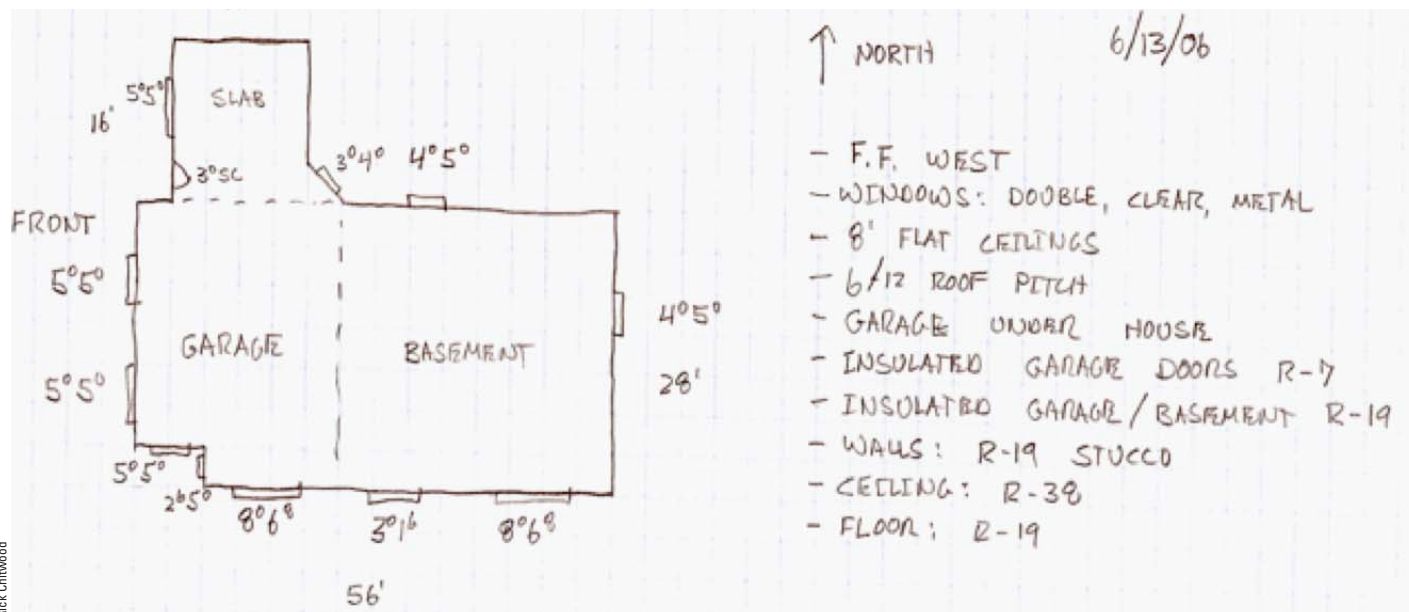 ↑ NORTH
6/13/06
5⁰5⁰
SLAB
16'
3⁰SC
3⁰4⁰
4⁰5⁰
FRONT
5⁰5⁰
4⁰5⁰
GARAGE
BASEMENT
5⁰5⁰
28'
5⁰5⁰
2⁶5⁰
8⁰6⁸
3⁰1⁶
8⁰6⁸
56'
- F.F. WEST
- WINDOWS: DOUBLE, CLEAR, METAL
- 8' FLAT CEILINGS
- 6/12 ROOF PITCH
- GARAGE UNDER HOUSE
- INSULATED GARAGE DOORS R-7
- INSULATED GARAGE/BASEMENT R-19
- WALLS: R-19 STUCCO
- CEILING: R-38
- FLOOR: R-19
Chitwood